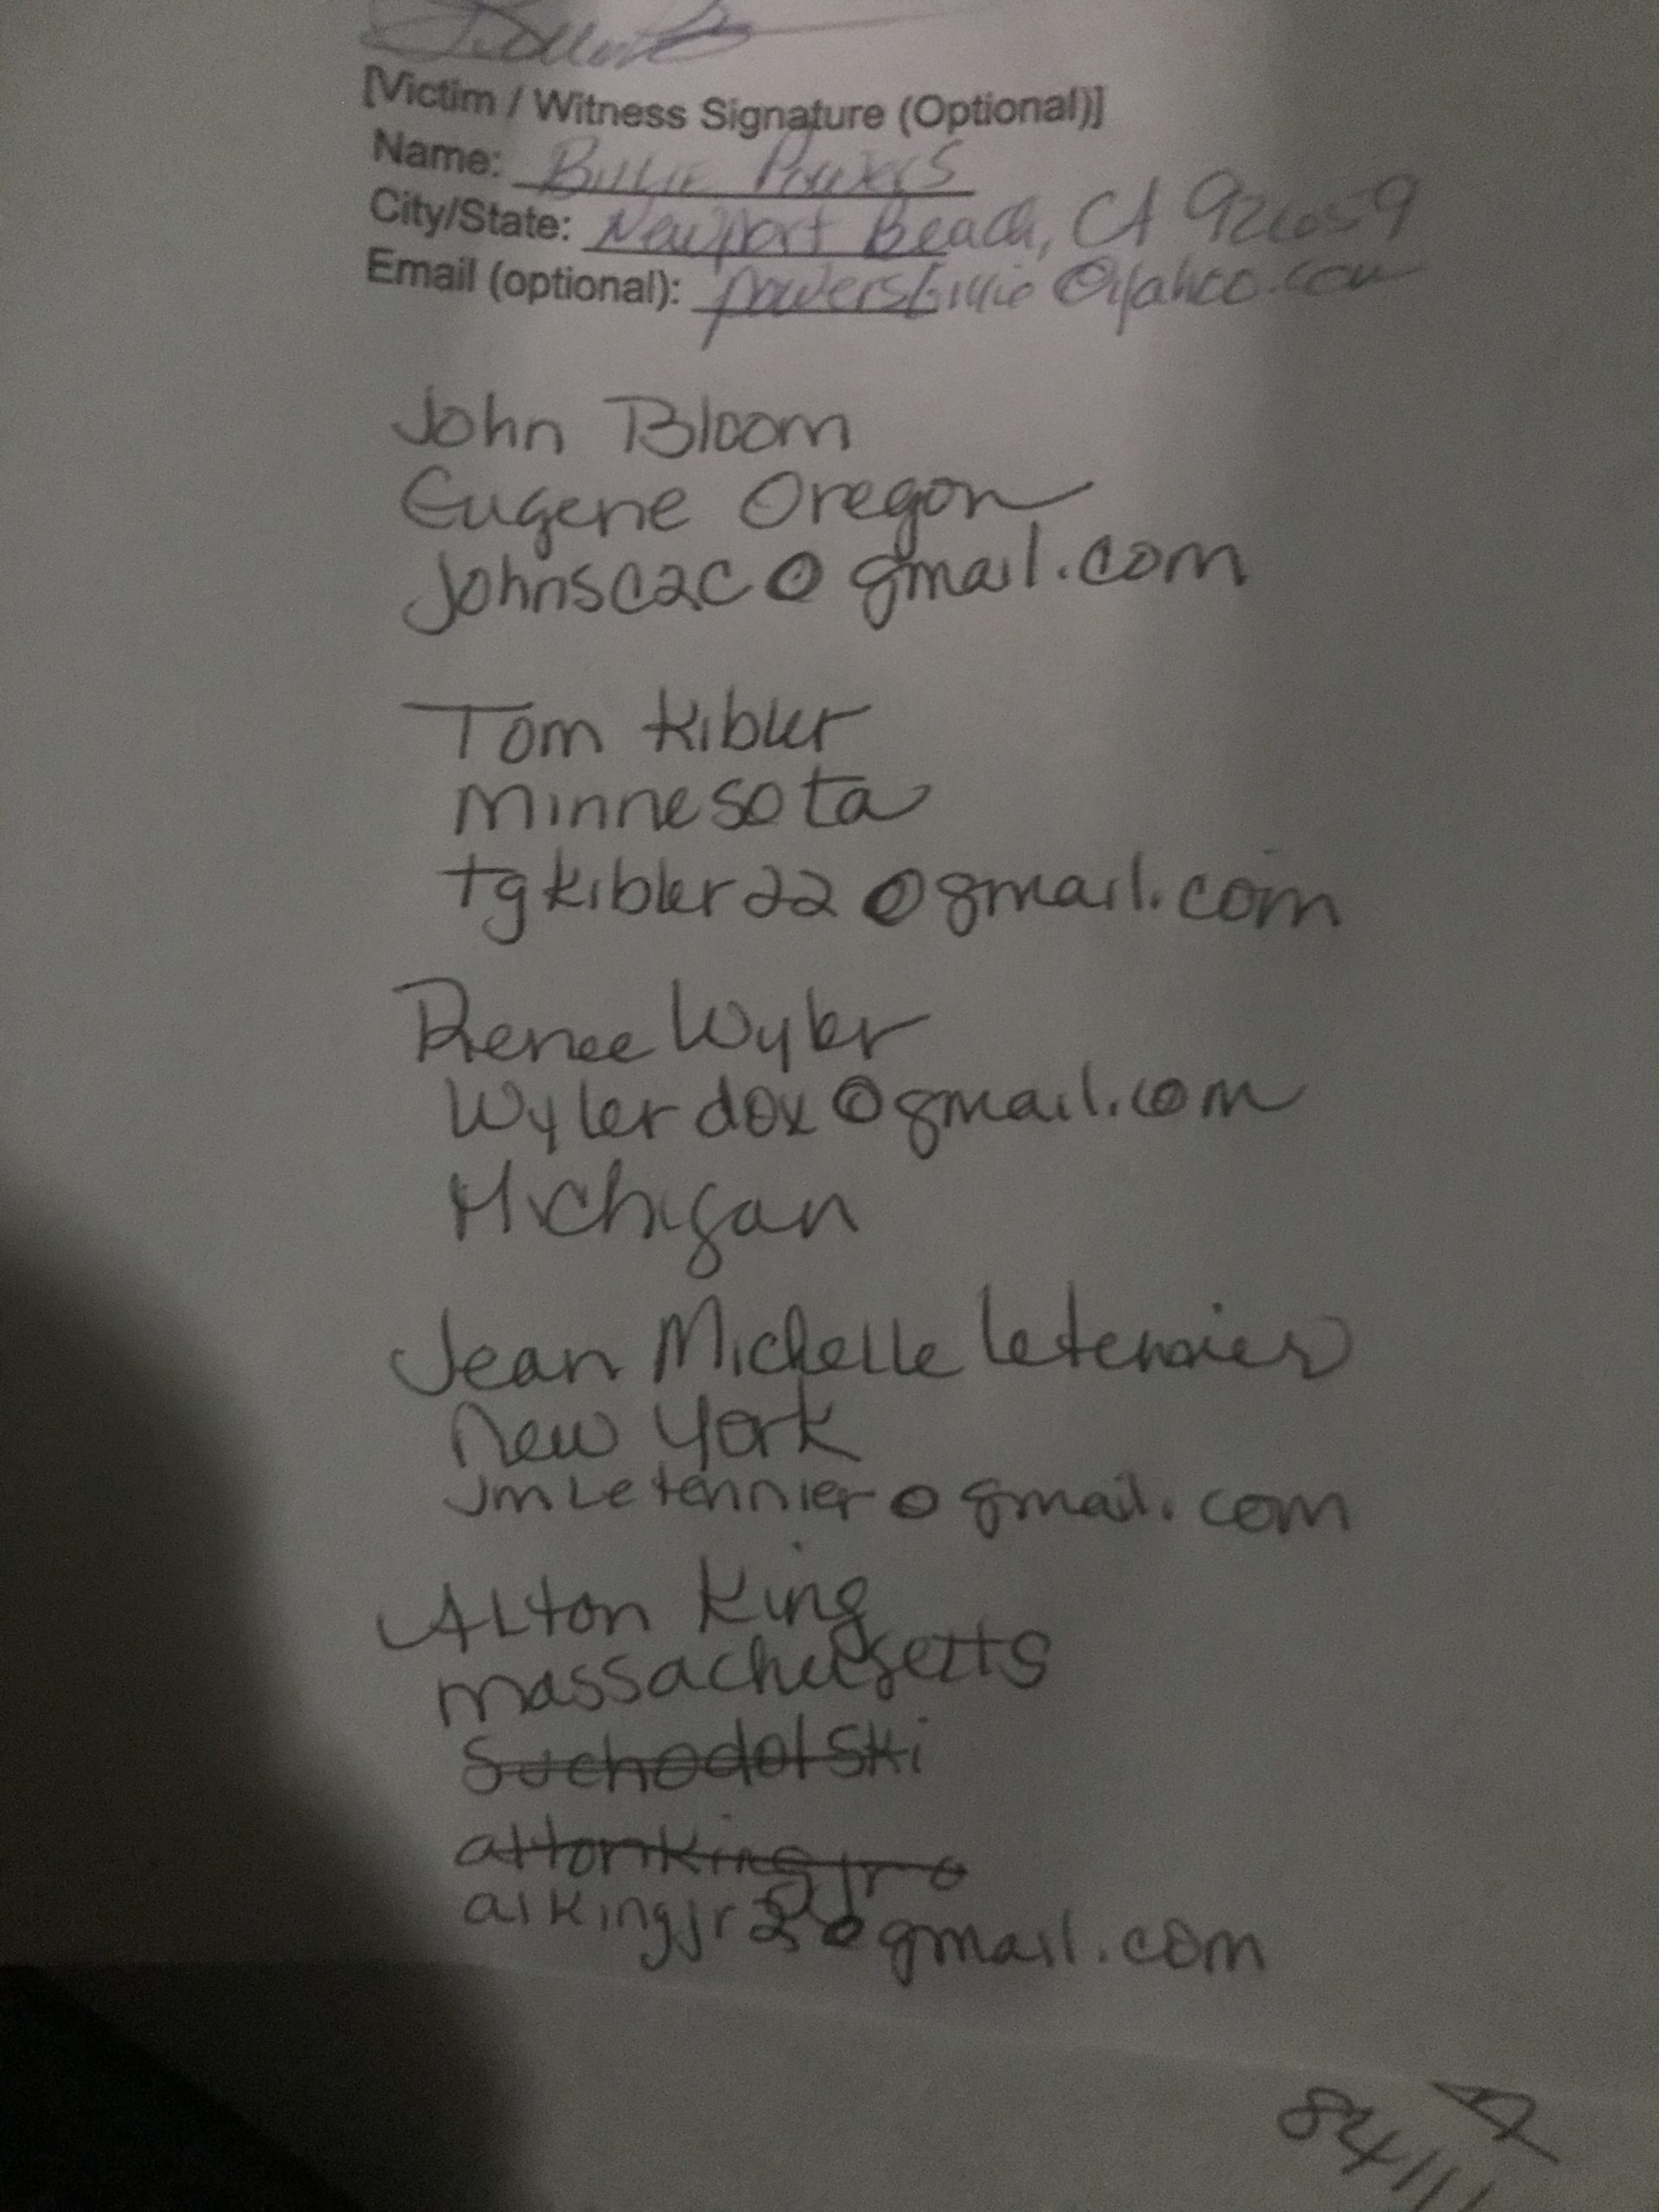 [Victim / Witness Signature (Optional)]
Name: Billie Powers
City/State: Newport Beach, CA 92659
Email (optional): powersbillie@yahoo.com
John Bloom
Eugene Oregon
Johnsc2c@gmail.com
Tom Kibler
Minnesota
tgkibler22@gmail.com
Renee Wyler
Wylerdox@gmail.com
Michigan
Jean Michelle Letennier
New York
JmLetennier@gmail.com
Alton King
massachusetts
Suchodolski
altonkingjr@
alkingjr2@gmail.com